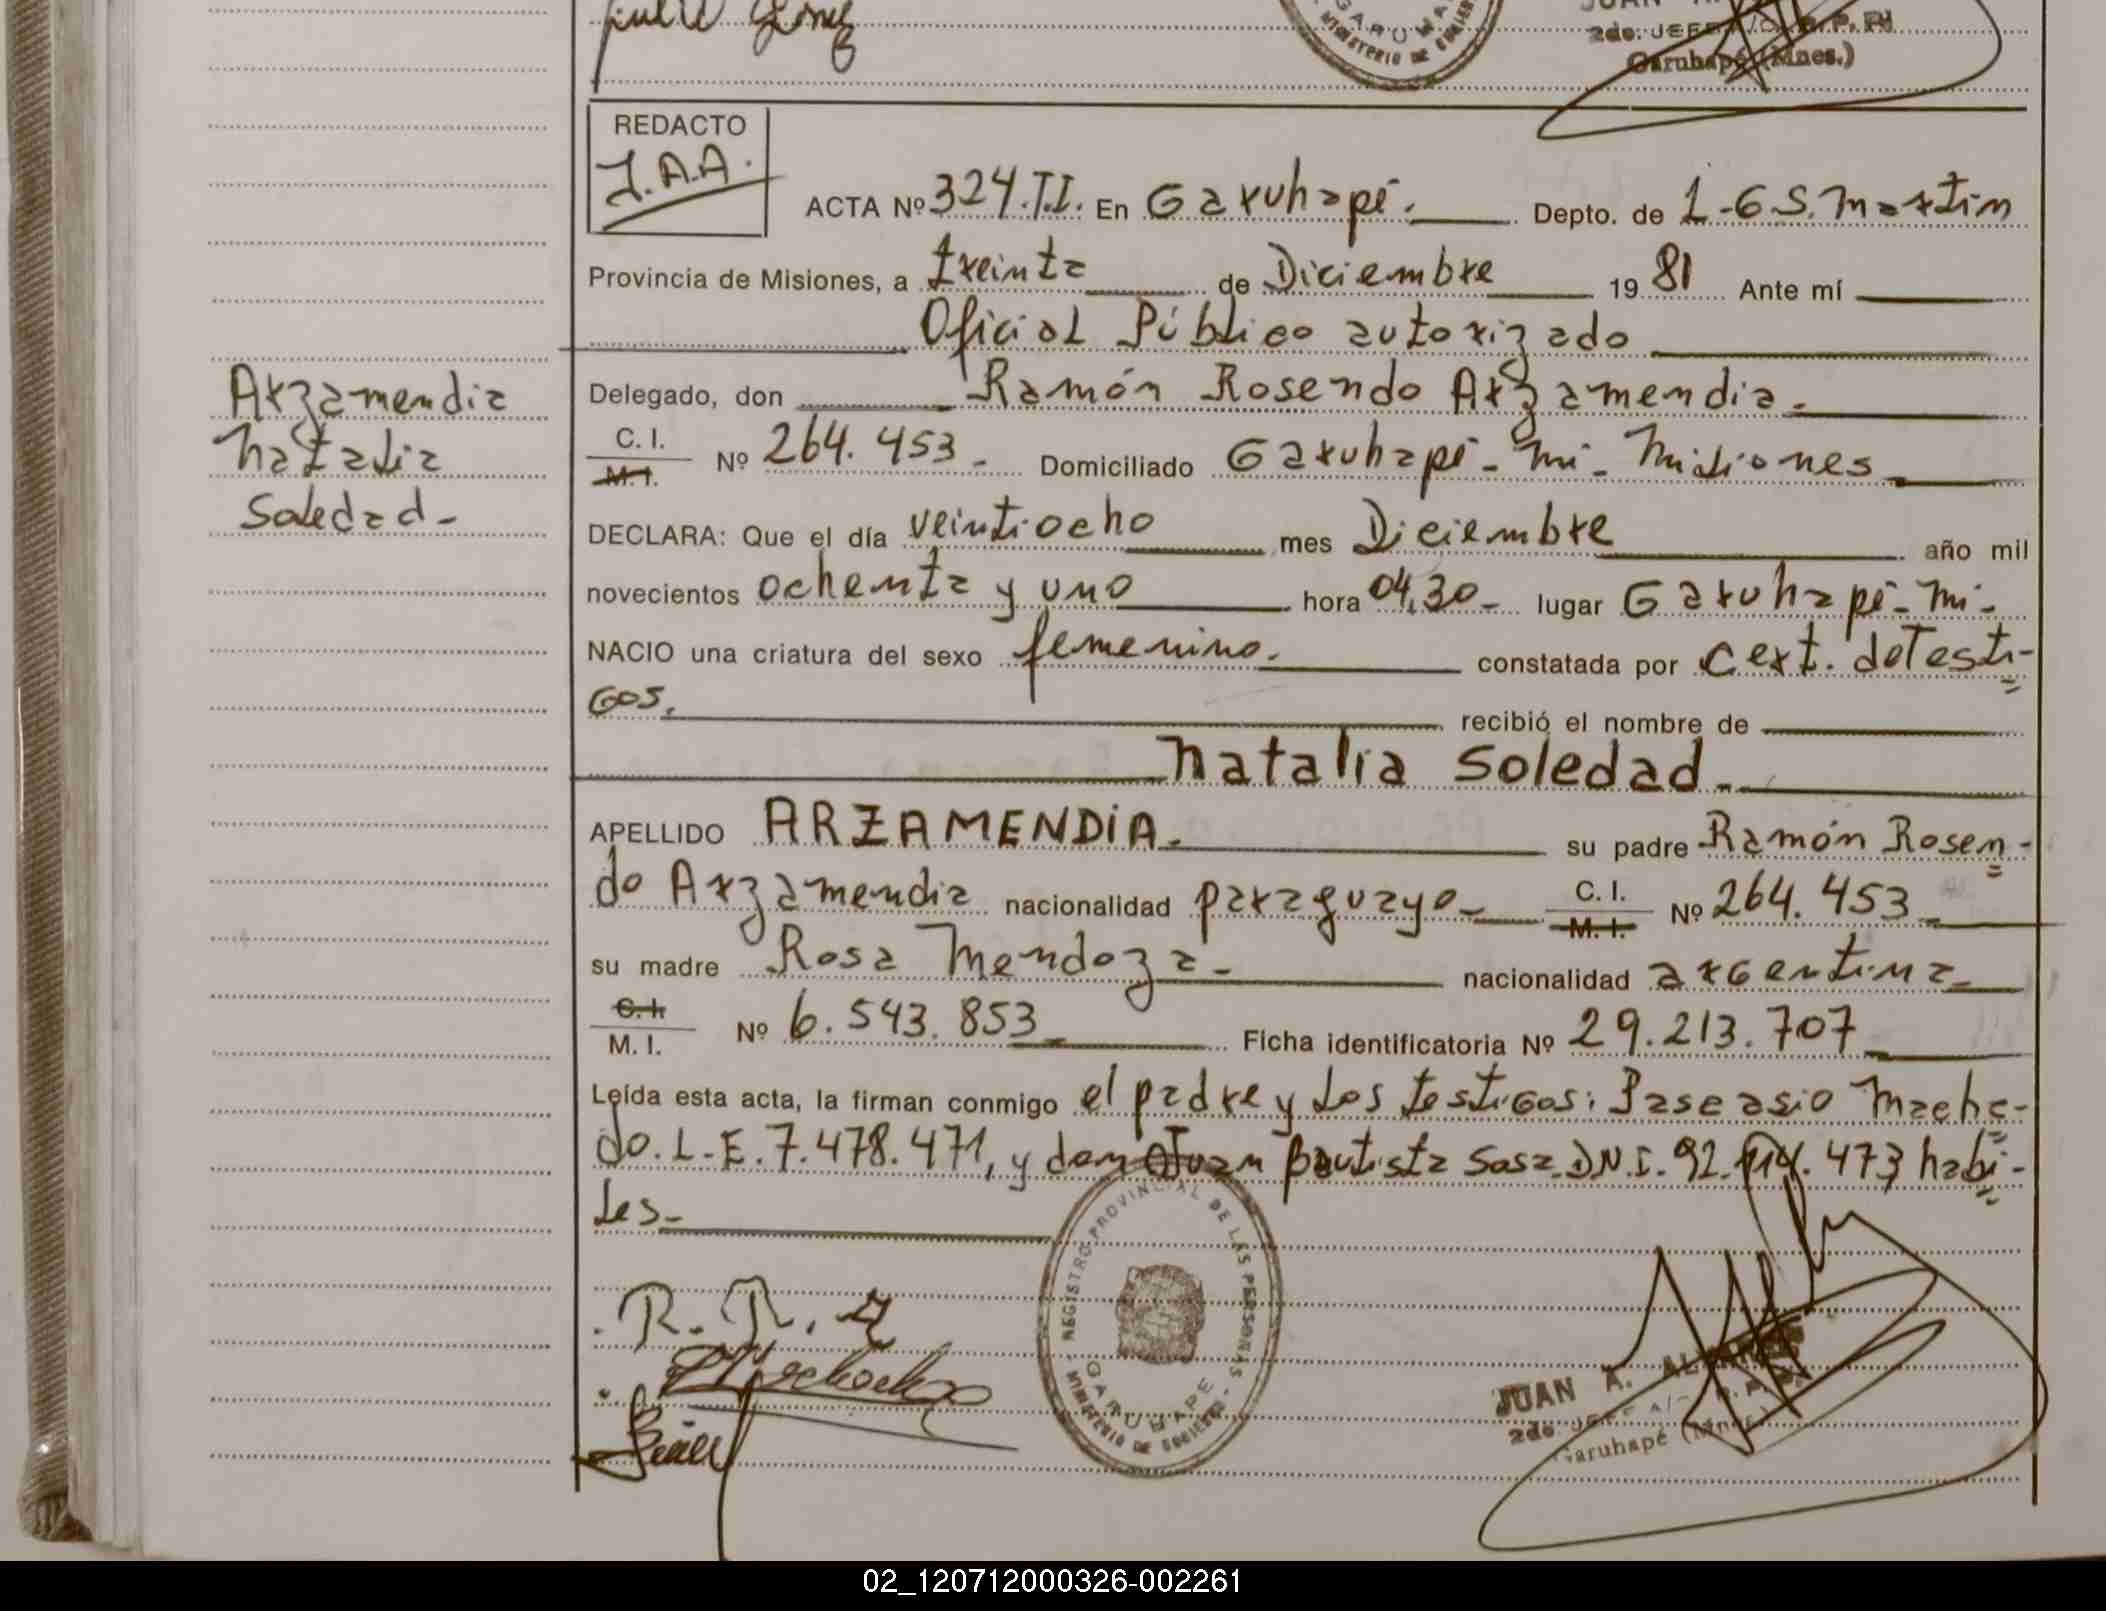 2do. JEFE
Garuhapé (Mnes.)
REDACTO
J.A.A.
ACTA Nº 324.T.I. En Garuhapé. Depto. de L-G S. Martin
Provincia de Misiones, a treinta de Diciembre 19 81 Ante mí
Oficial Público autorizado
Delegado, don Ramón Rosendo Arzamendia.
C. I.
M. I. Nº 264.453 - Domiciliado Garuhapé - Mi - Misiones
Arzamendia
Natalia
Soledad -
DECLARA: Que el día veintiocho mes Diciembre año mil
novecientos ochenta y uno hora 04,30 - lugar Garuhapé - Mi -
NACIO una criatura del sexo femenino. constatada por Cert. de Testi-
gos. recibió el nombre de
Natalia Soledad -
APELLIDO ARZAMENDIA. su padre Ramón Rosen-
do Arzamendia nacionalidad paraguayo - C. I.
M. I. Nº 264.453 -
su madre Rosa Mendoza - nacionalidad argentina -
C. I.
M. I. Nº 6.543.853 Ficha identificatoria Nº 29.213.707
Leída esta acta, la firman conmigo el padre y los testigos: Pascasio Macha-
do. L.E. 7.478.471, y don Juan Bautista Sosa D.N.I. 92. 473 habi-
les -
REGISTRO PROVINCIAL DE LAS PERSONAS
GARUHAPE
MINISTERIO DE GOBIERNO
R. R. A
JUAN A.
2do JEFE
Garuhapé (Mnes.)
02_120712000326-002261